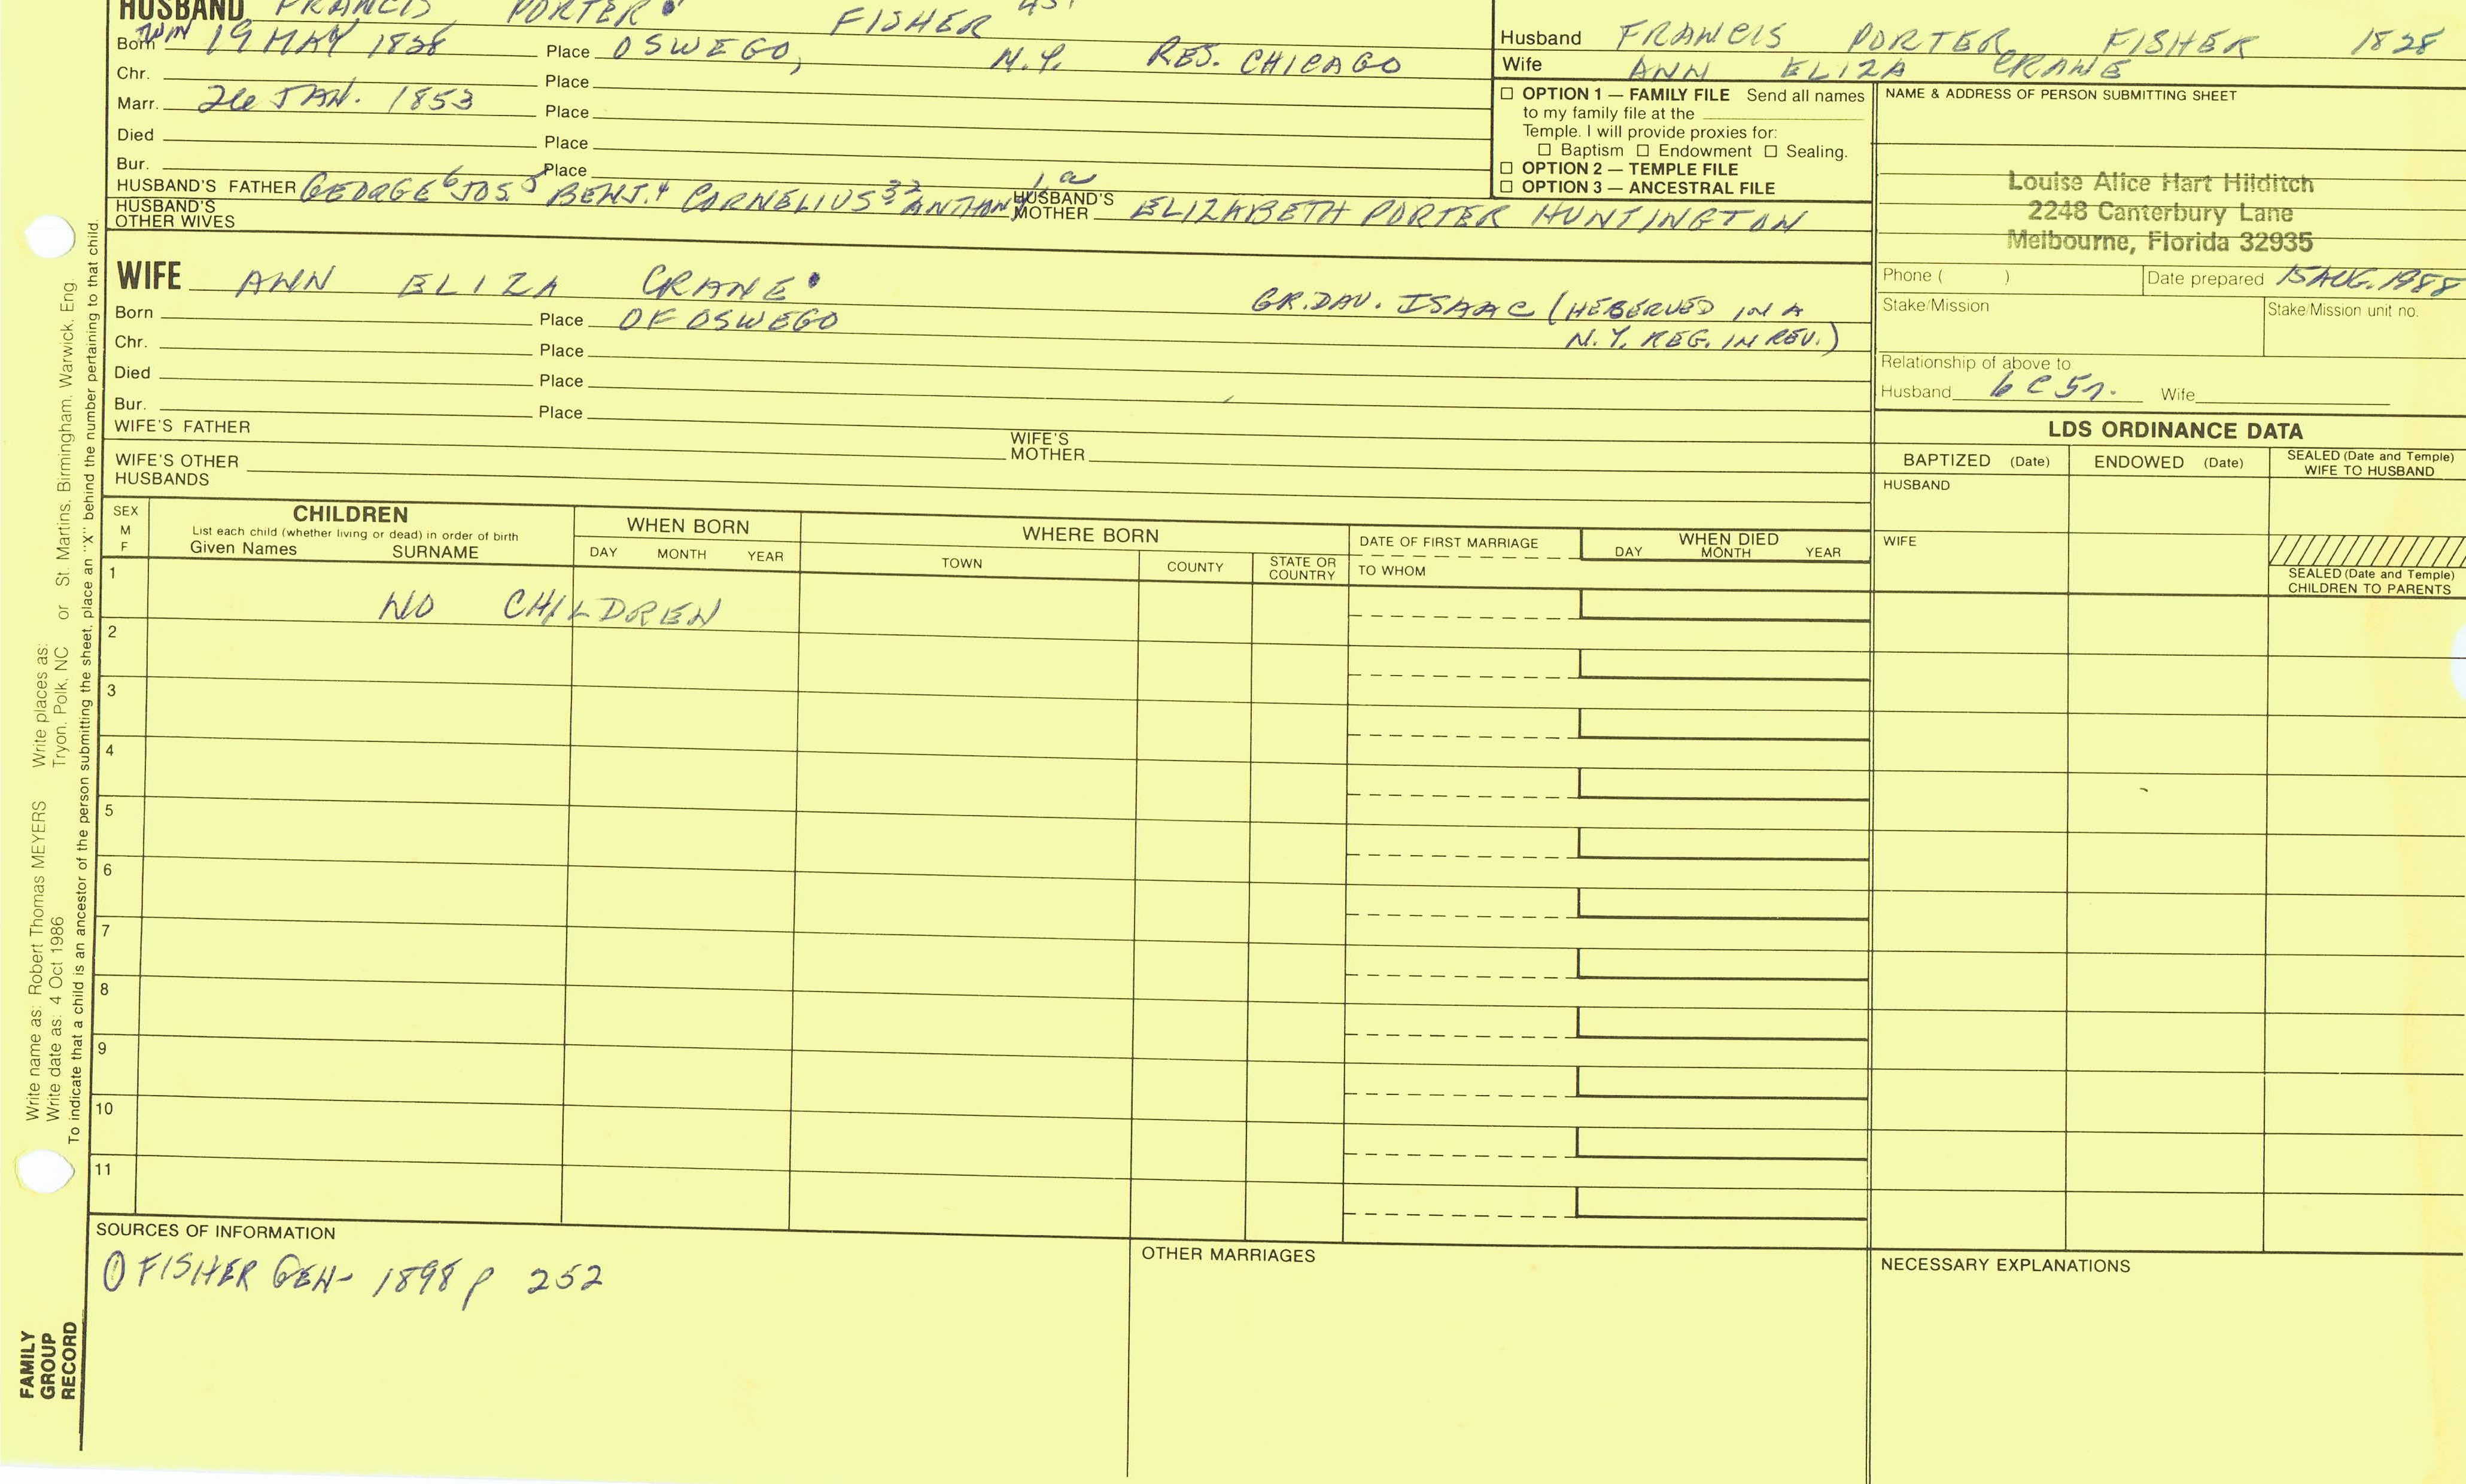 HUSBAND FRANCIS PORTER FISHER
Born TWIN 19 MAY 1828 Place OSWEGO, N.Y. RES. CHICAGO
Chr. Place
Marr. 26 JAN. 1853 Place
Died Place
Bur. Place
HUSBAND'S FATHER GEORGE6 JOS.5 BENJ.4 CORNELIUS3 2 ANTHONY 1,a HUSBAND'S MOTHER ELIZABETH PORTER HUNTINGTON
HUSBAND'S OTHER WIVES
WIFE ANN ELIZA CRANE
GR.DAU. ISAAC (HE SERVED IN A
N.Y. REG. IN REV.)
Born Place OF OSWEGO
Chr. Place
Died Place
Bur. Place
WIFE'S FATHER WIFE'S MOTHER
WIFE'S OTHER HUSBANDS
Husband FRANCIS PORTER FISHER 1828
Wife ANN ELIZA CRANE
☐ OPTION 1 — FAMILY FILE Send all names
to my family file at the
Temple. I will provide proxies for:
☐ Baptism ☐ Endowment ☐ Sealing.
☐ OPTION 2 — TEMPLE FILE
☐ OPTION 3 — ANCESTRAL FILE
NAME & ADDRESS OF PERSON SUBMITTING SHEET
Louise Alice Hart Hilditch
2248 Canterbury Lane
Melbourne, Florida 32935
Phone ( ) Date prepared 15 AUG. 1988
Stake/Mission Stake/Mission unit no.
Relationship of above to
Husband 6 C 5r. Wife
LDS ORDINANCE DATA
BAPTIZED (Date) ENDOWED (Date) SEALED (Date and Temple) WIFE TO HUSBAND
HUSBAND
WIFE
SEALED (Date and Temple) CHILDREN TO PARENTS
SEX M F
CHILDREN
List each child (whether living or dead) in order of birth
Given Names SURNAME
WHEN BORN
DAY MONTH YEAR
WHERE BORN
TOWN COUNTY STATE OR COUNTRY
DATE OF FIRST MARRIAGE
TO WHOM
WHEN DIED
DAY MONTH YEAR
1
NO CHILDREN
2
3
4
5
6
7
8
9
10
11
SOURCES OF INFORMATION
① FISHER GEN- 1898 p 252
OTHER MARRIAGES
NECESSARY EXPLANATIONS
Write name as: Robert Thomas MEYERS Write places as:
Write date as: 4 Oct 1986 Tryon, Polk, NC or St. Martins, Birmingham, Warwick, Eng.
To indicate that a child is an ancestor of the person submitting the sheet, place an "X" behind the number pertaining to that child.
FAMILY
GROUP
RECORD